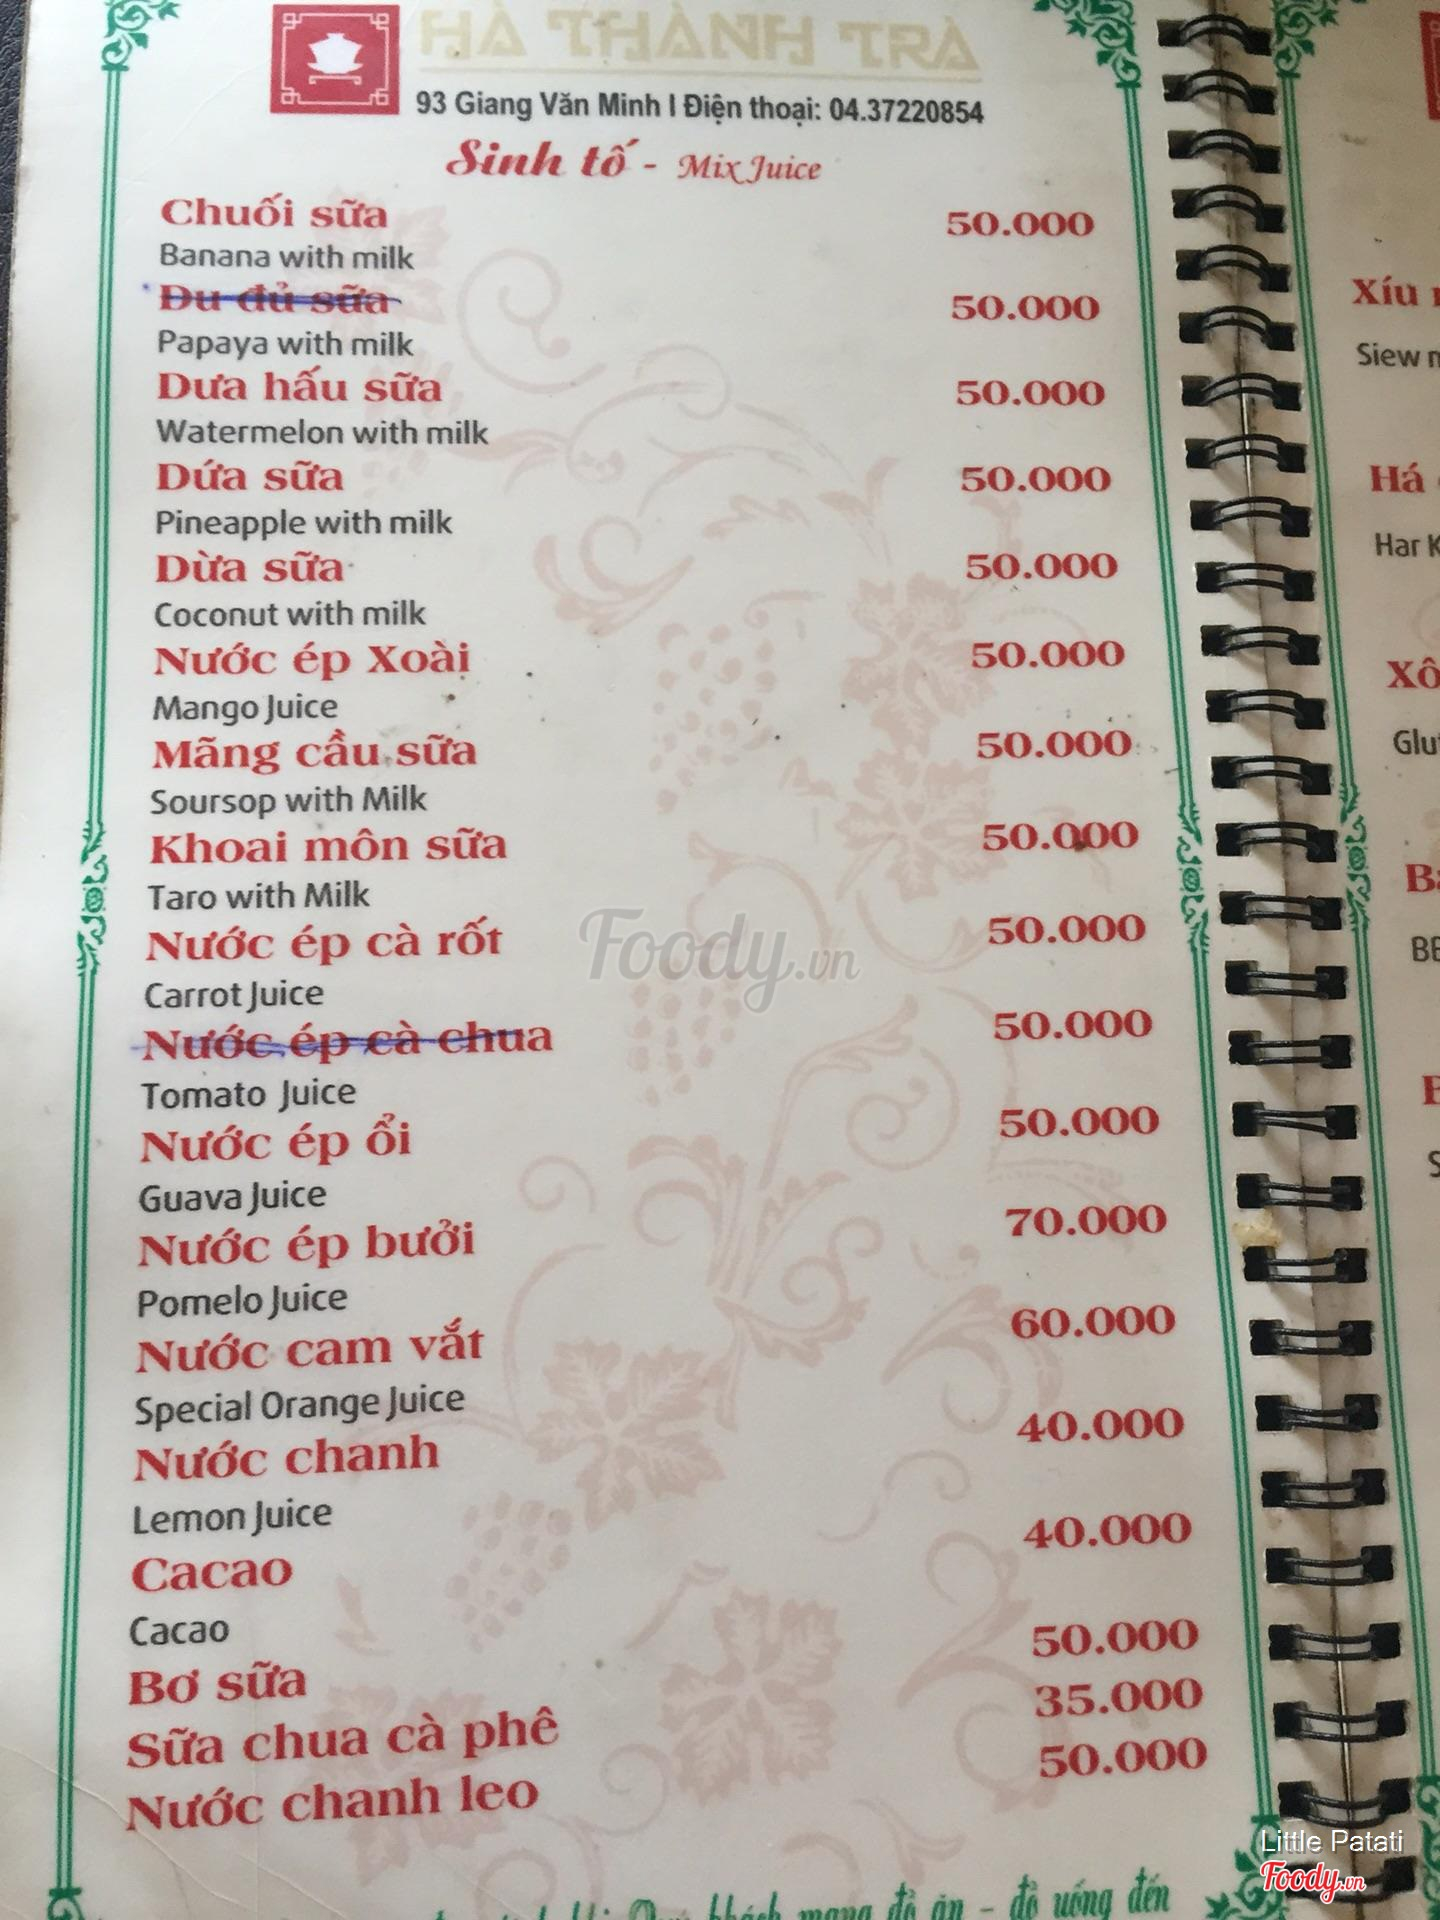 HÀ THÀNH TRÀ
93 Giang Văn Minh I Điện thoại: 04.37220854
Sinh tố - Mix Juice
Chuối sữa 50.000
Banana with milk
Đu đủ sữa 50.000
Papaya with milk
Dưa hấu sữa 50.000
Watermelon with milk
Dứa sữa 50.000
Pineapple with milk
Dừa sữa 50.000
Coconut with milk
Nước ép Xoài 50.000
Mango Juice
Mãng cầu sữa 50.000
Soursop with Milk
Khoai môn sữa 50.000
Taro with Milk
Nước ép cà rốt 50.000
Carrot Juice
Nước ép cà chua 50.000
Tomato Juice
Nước ép ổi 50.000
Guava Juice
Nước ép bưởi 70.000
Pomelo Juice
Nước cam vắt 60.000
Special Orange Juice
Nước chanh 40.000
Lemon Juice
Cacao 40.000
Cacao
Bơ sữa 50.000
Sữa chua cà phê 35.000
Nước chanh leo 50.000
khách mang đồ ăn - đồ uống đến
Xíu
Siew
Há
Har
Foody.vn
Little Patati
Foody.vn